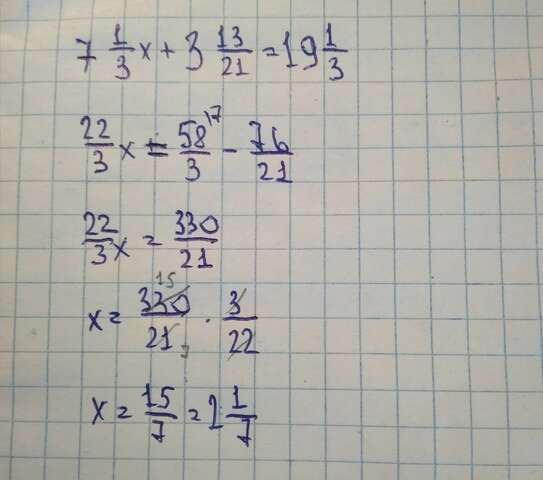 7 1/3 x + 3 13/21 = 19 1/3
22/3 x = 58/3 \7 - 76/21
22/3 x = 330/21
x = 330/21 · 3/22 15 7
x = 15/7 = 2 1/7